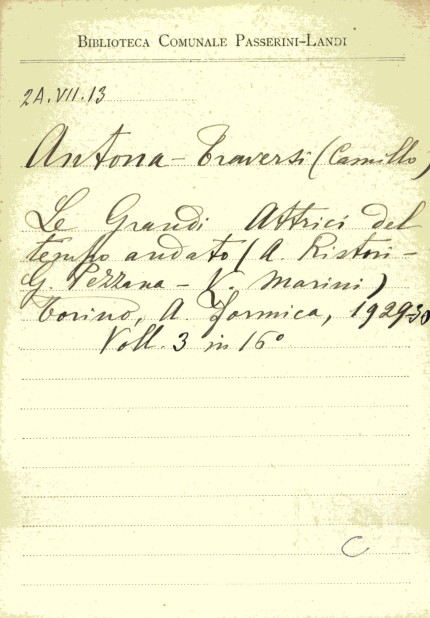 BIBLIOTECA COMUNALE PASSERINI-LANDI
2A.VII.13
Antona-Traversi (Camillo)
Le Grandi Attrici del
tempo andato (A. Ristori-
G. Pezzana - V. Marini)
Torino, A. Formica, 1929-30
Voll. 3 in 16°
C